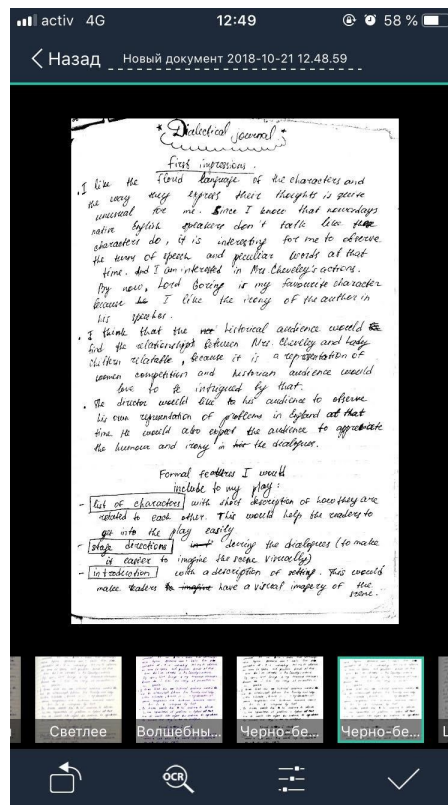 activ 4G 12:49 58 %
Назад Новый документ 2018-10-21 12.48.59
* Dialectical journal *
First impressions.
. I like the florid language of the characters and
the way they express their thoughts is quite
unusual for me. Since I know that nowerdays
native English speakers don't talk like
characters do, it is interesting for me to observe
the turns of speech and peculiar words at that
time. And I am interested in Mrs. Cheveley's actions.
By now, Lord Goring is my favourite character
because I like the irony of the author in
his speeches.
. I think that the historical audience would
find the relationships between Mrs. Cheveley and Lady
Chiltern relatable, because it is a representation of
women competition and historian audience would
love to be intrigued by that.
. The director would like his audience to observe
his own representation of problems in England at that
time. He would also expect the audience to appreciate
the humour and irony in the dialogues.
Formal features I would
include to my play:
- list of characters with short description of how they are
related to each other. This would help the readers to
get into the play easily
- stage directions during the dialogues (to make
it easier to imagine the scene visually)
- introduction with a description of setting. This would
make readers have a visual imagery of the
scene.
Светлее Волшебны... Черно-бе... Черно-бе...
OCR